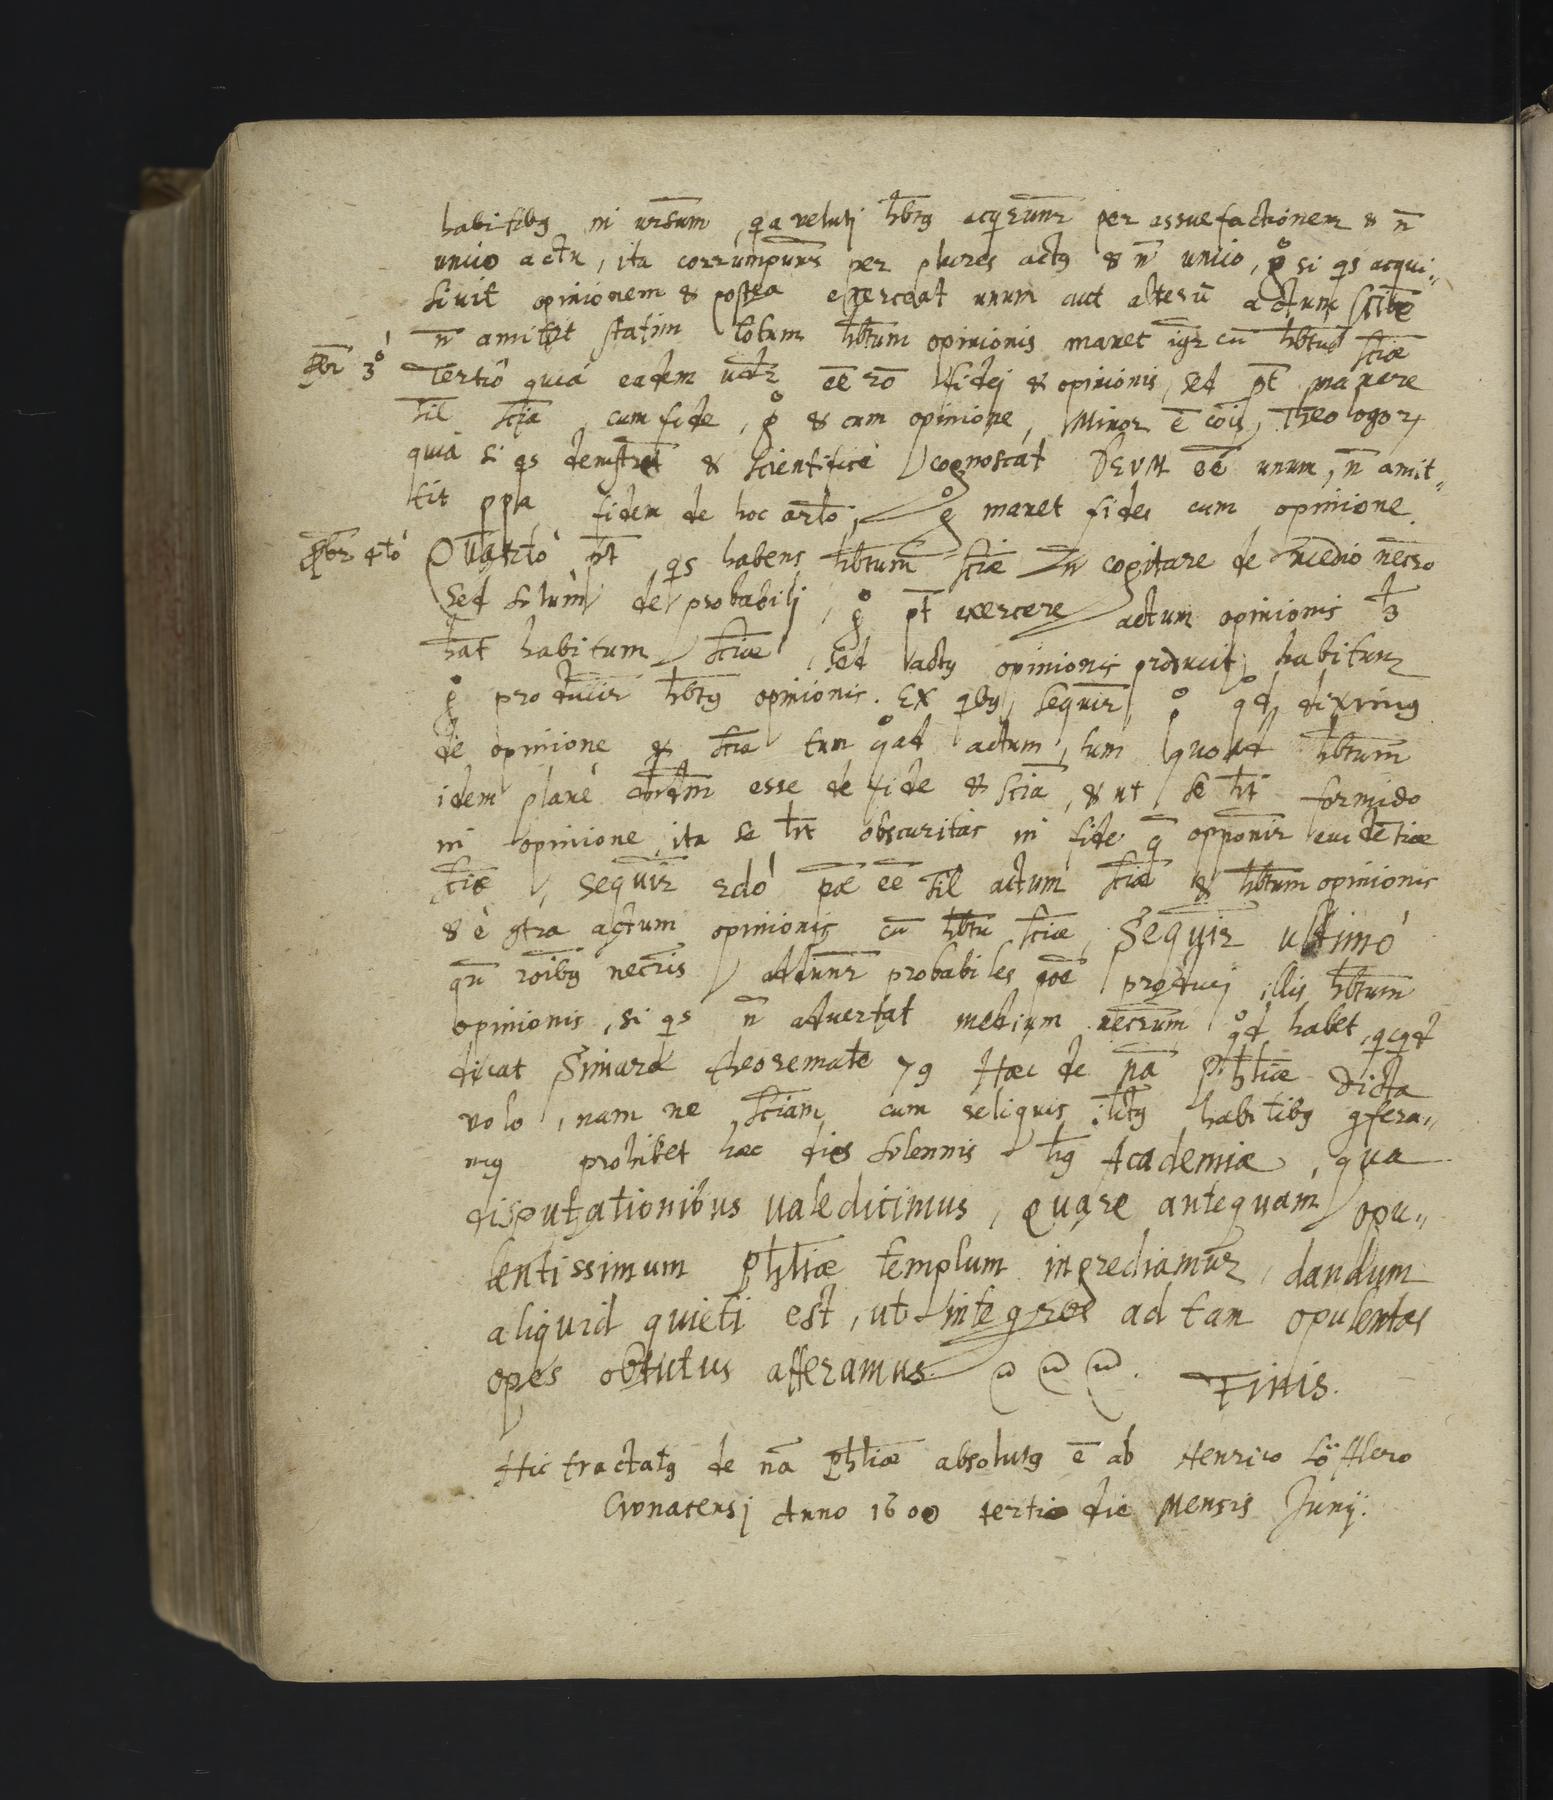 habitibꝫ in ursum, qa veluti hbtꝫ acqruntr per assuefactionem & n̄
unico actu, ita corrumpuntr per plures actꝫ & n̄ unico, g° si qs acqui-
sivit opinionem & postea exerceat unum aut alterū actum sciæ
n̄ amittit statim totum hbtum opinionis manet igr cū hbtu sciæ
Pbr 3° Tertiò quia eadem vdr ēē rō fidej & opinionis, sed pt manere
sil scia cum fide, g° & cum opinione, Minor ē cōis Theologorꝝ
quia si qs demstret & scientificè cognoscat DEVM ēē unum, n̄ amit-
tit ppea fidem de hoc artlo, g° manet fides cum opinione
Pbr 4tò Quartò pt qs habens hbtum sciæ n̄ cogitare de medio necro
sed solùm de probabilj, g° pt exercere actum opinionis lꝫ
hat habitum sciæ, sed actꝫ opinionis producit habitum
g° producitr hbtꝫ opinionis. Ex qibꝫ sequitr 1° qd diximꝫ
de opinione & scia tum qoad actum, tum quoad hbtum
idem planè esse de fide & scia, & ut se ht formido
in opinione ita se ht obscuritas in fide q̄ opponitr evidētiæ
sciæ, sequitr 2dò pē ēē sil actum sciæ & hbtum opinionis
& è gtra actum opinionis cū hbtu sciæ, Sequitr ultimò
qn̄ roībꝫ necris adduntr probabiles poē producj illis hbtum
opinionis, si qs n̄ advertat medium necrum qd habet, qcqd
dicat Simara theoremate 79 Hæc de nā Phliæ dicta
volo, nam ne sciam cum reliquis habitibꝫ gfera-
mꝫ prohibet hæc dies solennis hꝫ Academiæ, qua
disputationibus valedicimus, Quare antequam opu-
lentissimum Phliæ templum ingrediamur, dandum
aliquid quieti est, ut integros ad tam opulentas
opes obtutus afferamus. Finis.
Hic tractatꝫ de nā Phliæ absolutꝫ ē ab Henrico Löfflero
Cronacensj Anno 1600 tertio die Mensis Junij.